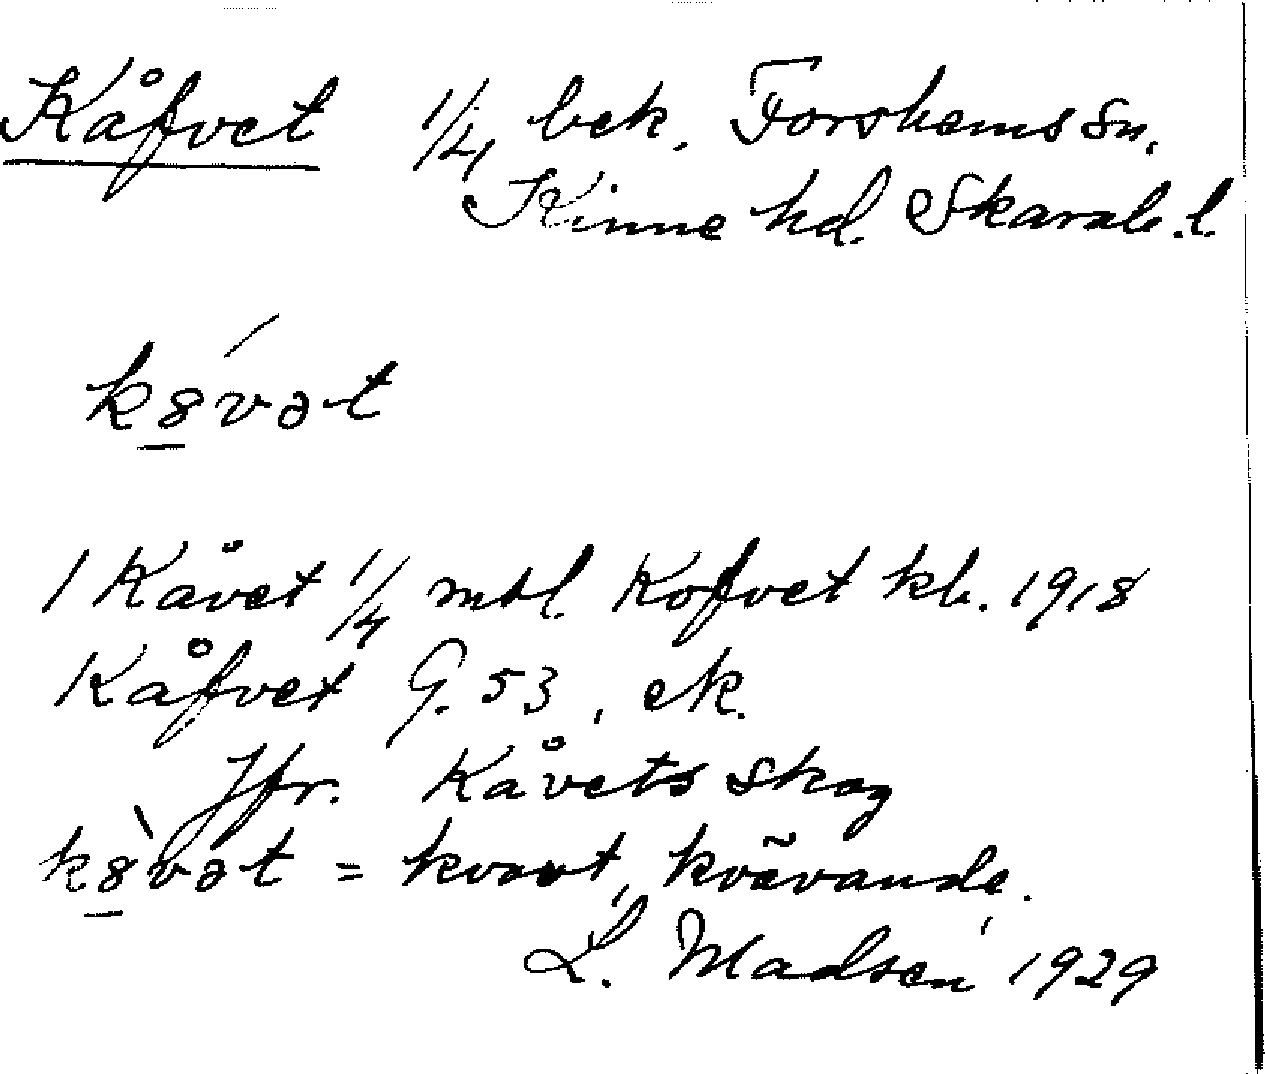 Kåfvet 1/4 bek. Forshems sn.
Kinne hd. Skarab. l.
kȣvət
1 Kåvet 1/4 mtl. Kofvet kb. 1918
Kåfvet G. 53, ek.
Jfr. Kåvets skog
kȣvət = kvavt, kvävande.
L. Madsén 1929